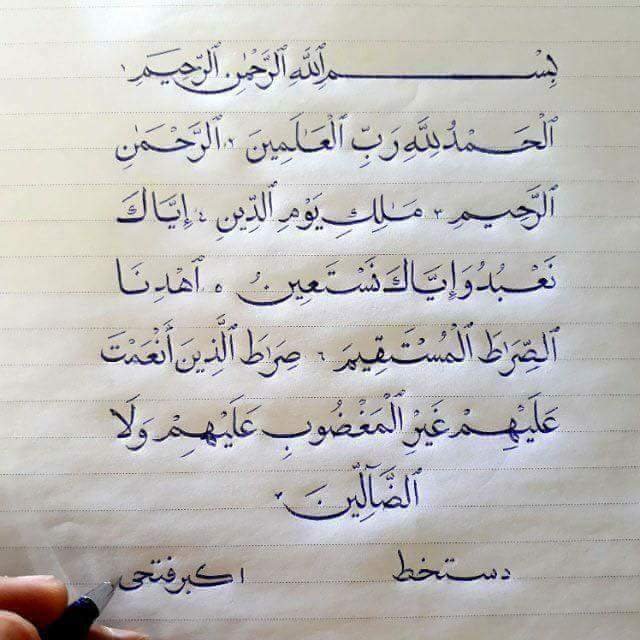 بِسْمِ ٱللَّهِ ٱلرَّحْمَٰنِ ٱلرَّحِيمِ ١
ٱلْحَمْدُ لِلَّهِ رَبِّ ٱلْعَالَمِينَ ٢ ٱلرَّحْمَٰنِ
ٱلرَّحِيمِ ٣ مَٰلِكِ يَوْمِ ٱلدِّينِ ٤ إِيَّاكَ
نَعْبُدُ وَإِيَّاكَ نَسْتَعِينُ ٥ ٱهْدِنَا
ٱلصِّرَٰطَ ٱلْمُسْتَقِيمَ ٦ صِرَٰطَ ٱلَّذِينَ أَنْعَمْتَ
عَلَيْهِمْ غَيْرِ ٱلْمَغْضُوبِ عَلَيْهِمْ وَلَا
ٱلضَّآلِّينَ ٧
دستخط اکبر فتحی